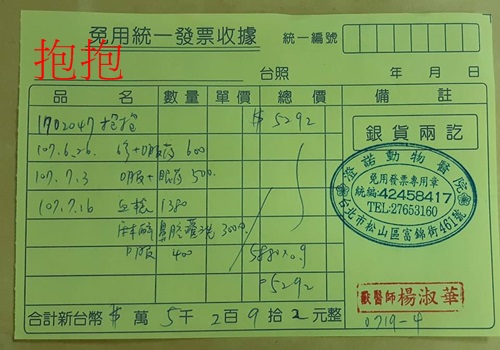 免用統一發票收據 統一編號
抱抱
台照 年 月 日
品 名 數量 單價 總價 備註
1702047 抱抱 $5292
銀貨兩訖
107.6.26. +口服藥 600
107.7.3 口服+眼藥 500.
107.7.16 血檢 1380
麻醉 鼻腔灌洗 3000
口服 400 5880x0.9
=5292
澄諾動物醫院
免用發票專用章
統編:42458417
TEL:27653160
台北市松山區富錦街461號
獸醫師 楊淑華
合計新台幣 $ 萬 5 千 2 百 9 拾 2 元整
0719-4